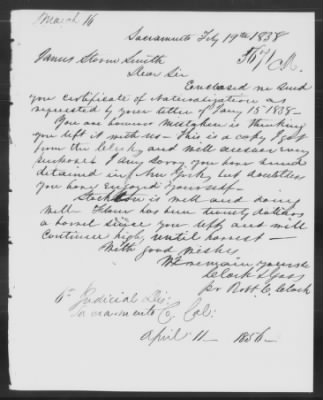 March 16
Sacramento Feby 19th 1858
James Storm Smith
Dear Sir
Enclosed we send
you certificate of Naturalization as
requested by your letter of Jany 15 1858—
You are however mistaken in thinking
you left it with us— This is a copy I got
from the clerk, and will answer every
purpose. I am sorry you have been
detained in New York, but doubtless
you have enjoyed yourself—
Stockton is well and doing
well— Flour has been twenty dollars
a barrel since you left, and will
continue high, until harvest—
With good wishes
We remain yours &c
Clark & Gass
per Robt. C. Clark
6th Judicial Dis.
Sacramento Co Cal:
April 11 — 1856—